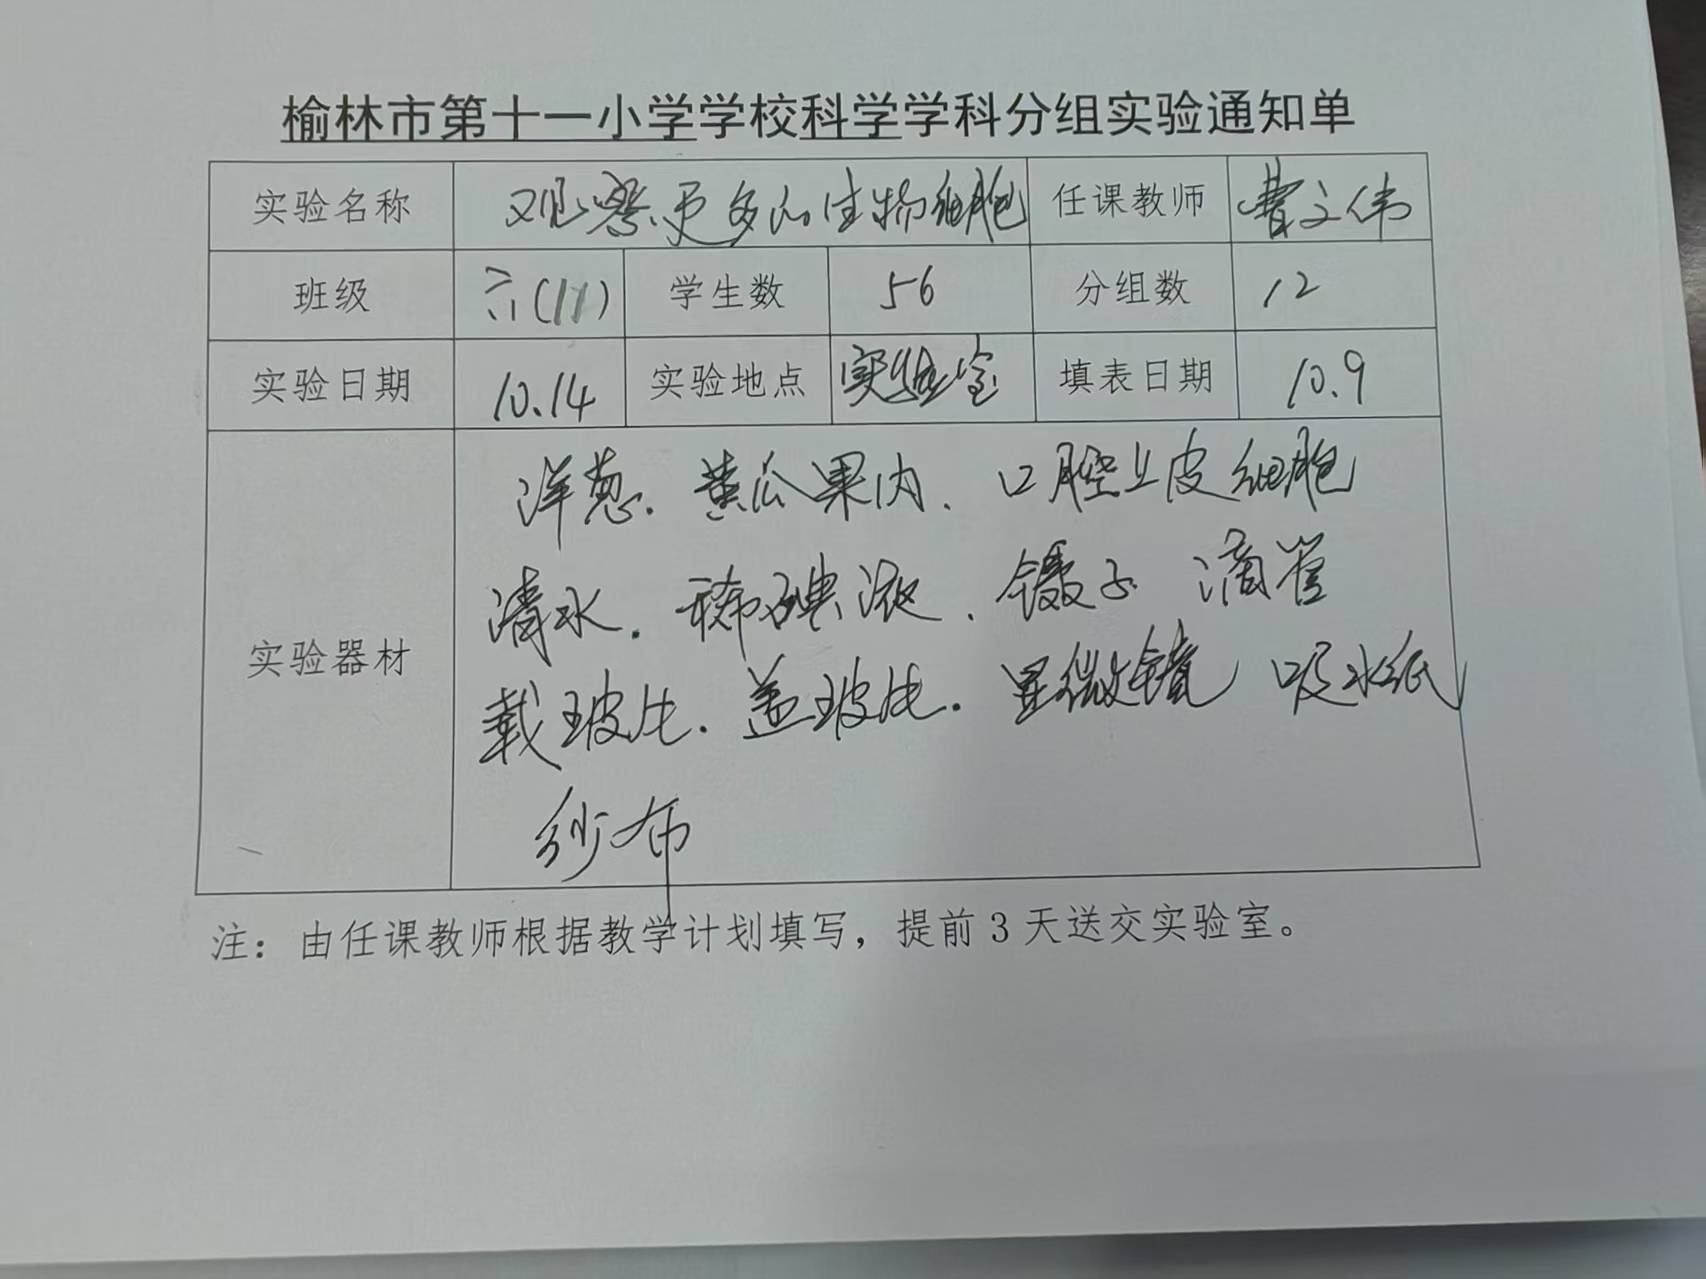 榆林市第十一小学学校科学学科分组实验通知单
实验名称 观察更多的生物细胞 任课教师 曹文伟
班级 六(11) 学生数 56 分组数 12
实验日期 10.14 实验地点 实验室 填表日期 10.9
实验器材
洋葱. 黄瓜果肉、口腔上皮细胞
清水. 稀碘液、镊子 滴管
载玻片. 盖玻片. 显微镜 吸水纸
纱布
注：由任课教师根据教学计划填写，提前3天送交实验室。